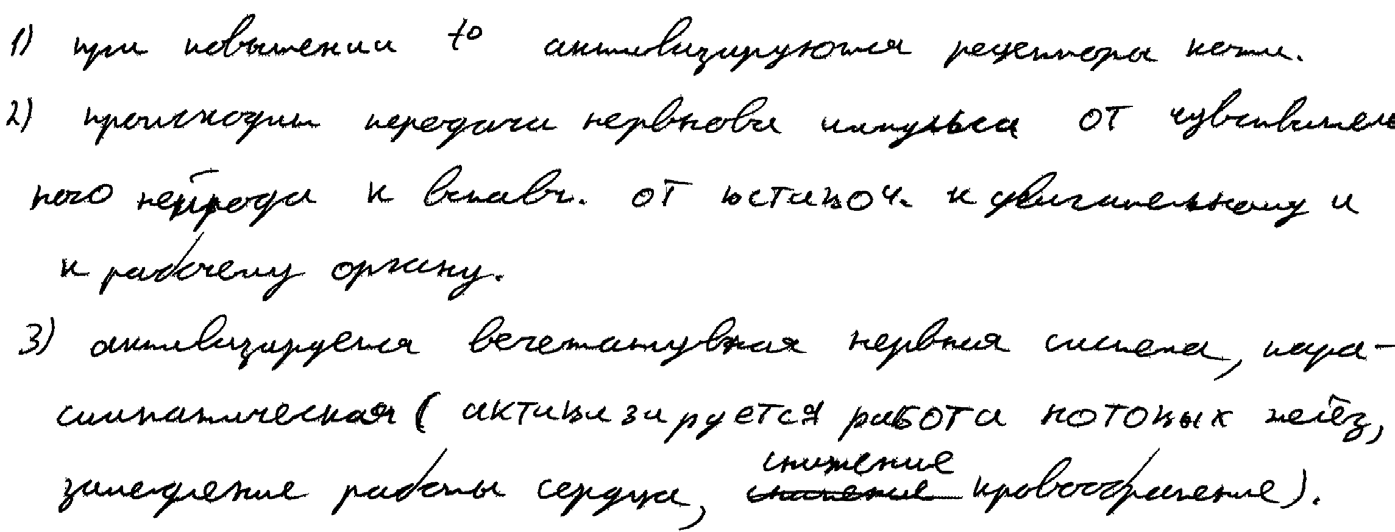 1) при повышении t° активизируются рецепторы кожи.
2) происходит передача нервнова импульса от чувствитель
ного нейрода к вставч. от вставоч. к двигательному и
к рабочему органу.
3) активизируется вегетатувная нервная система, пара-
симпатическая ( активизируется работа потовых желёз,
снижение
замедление работы сердца, снижение кровообращение).